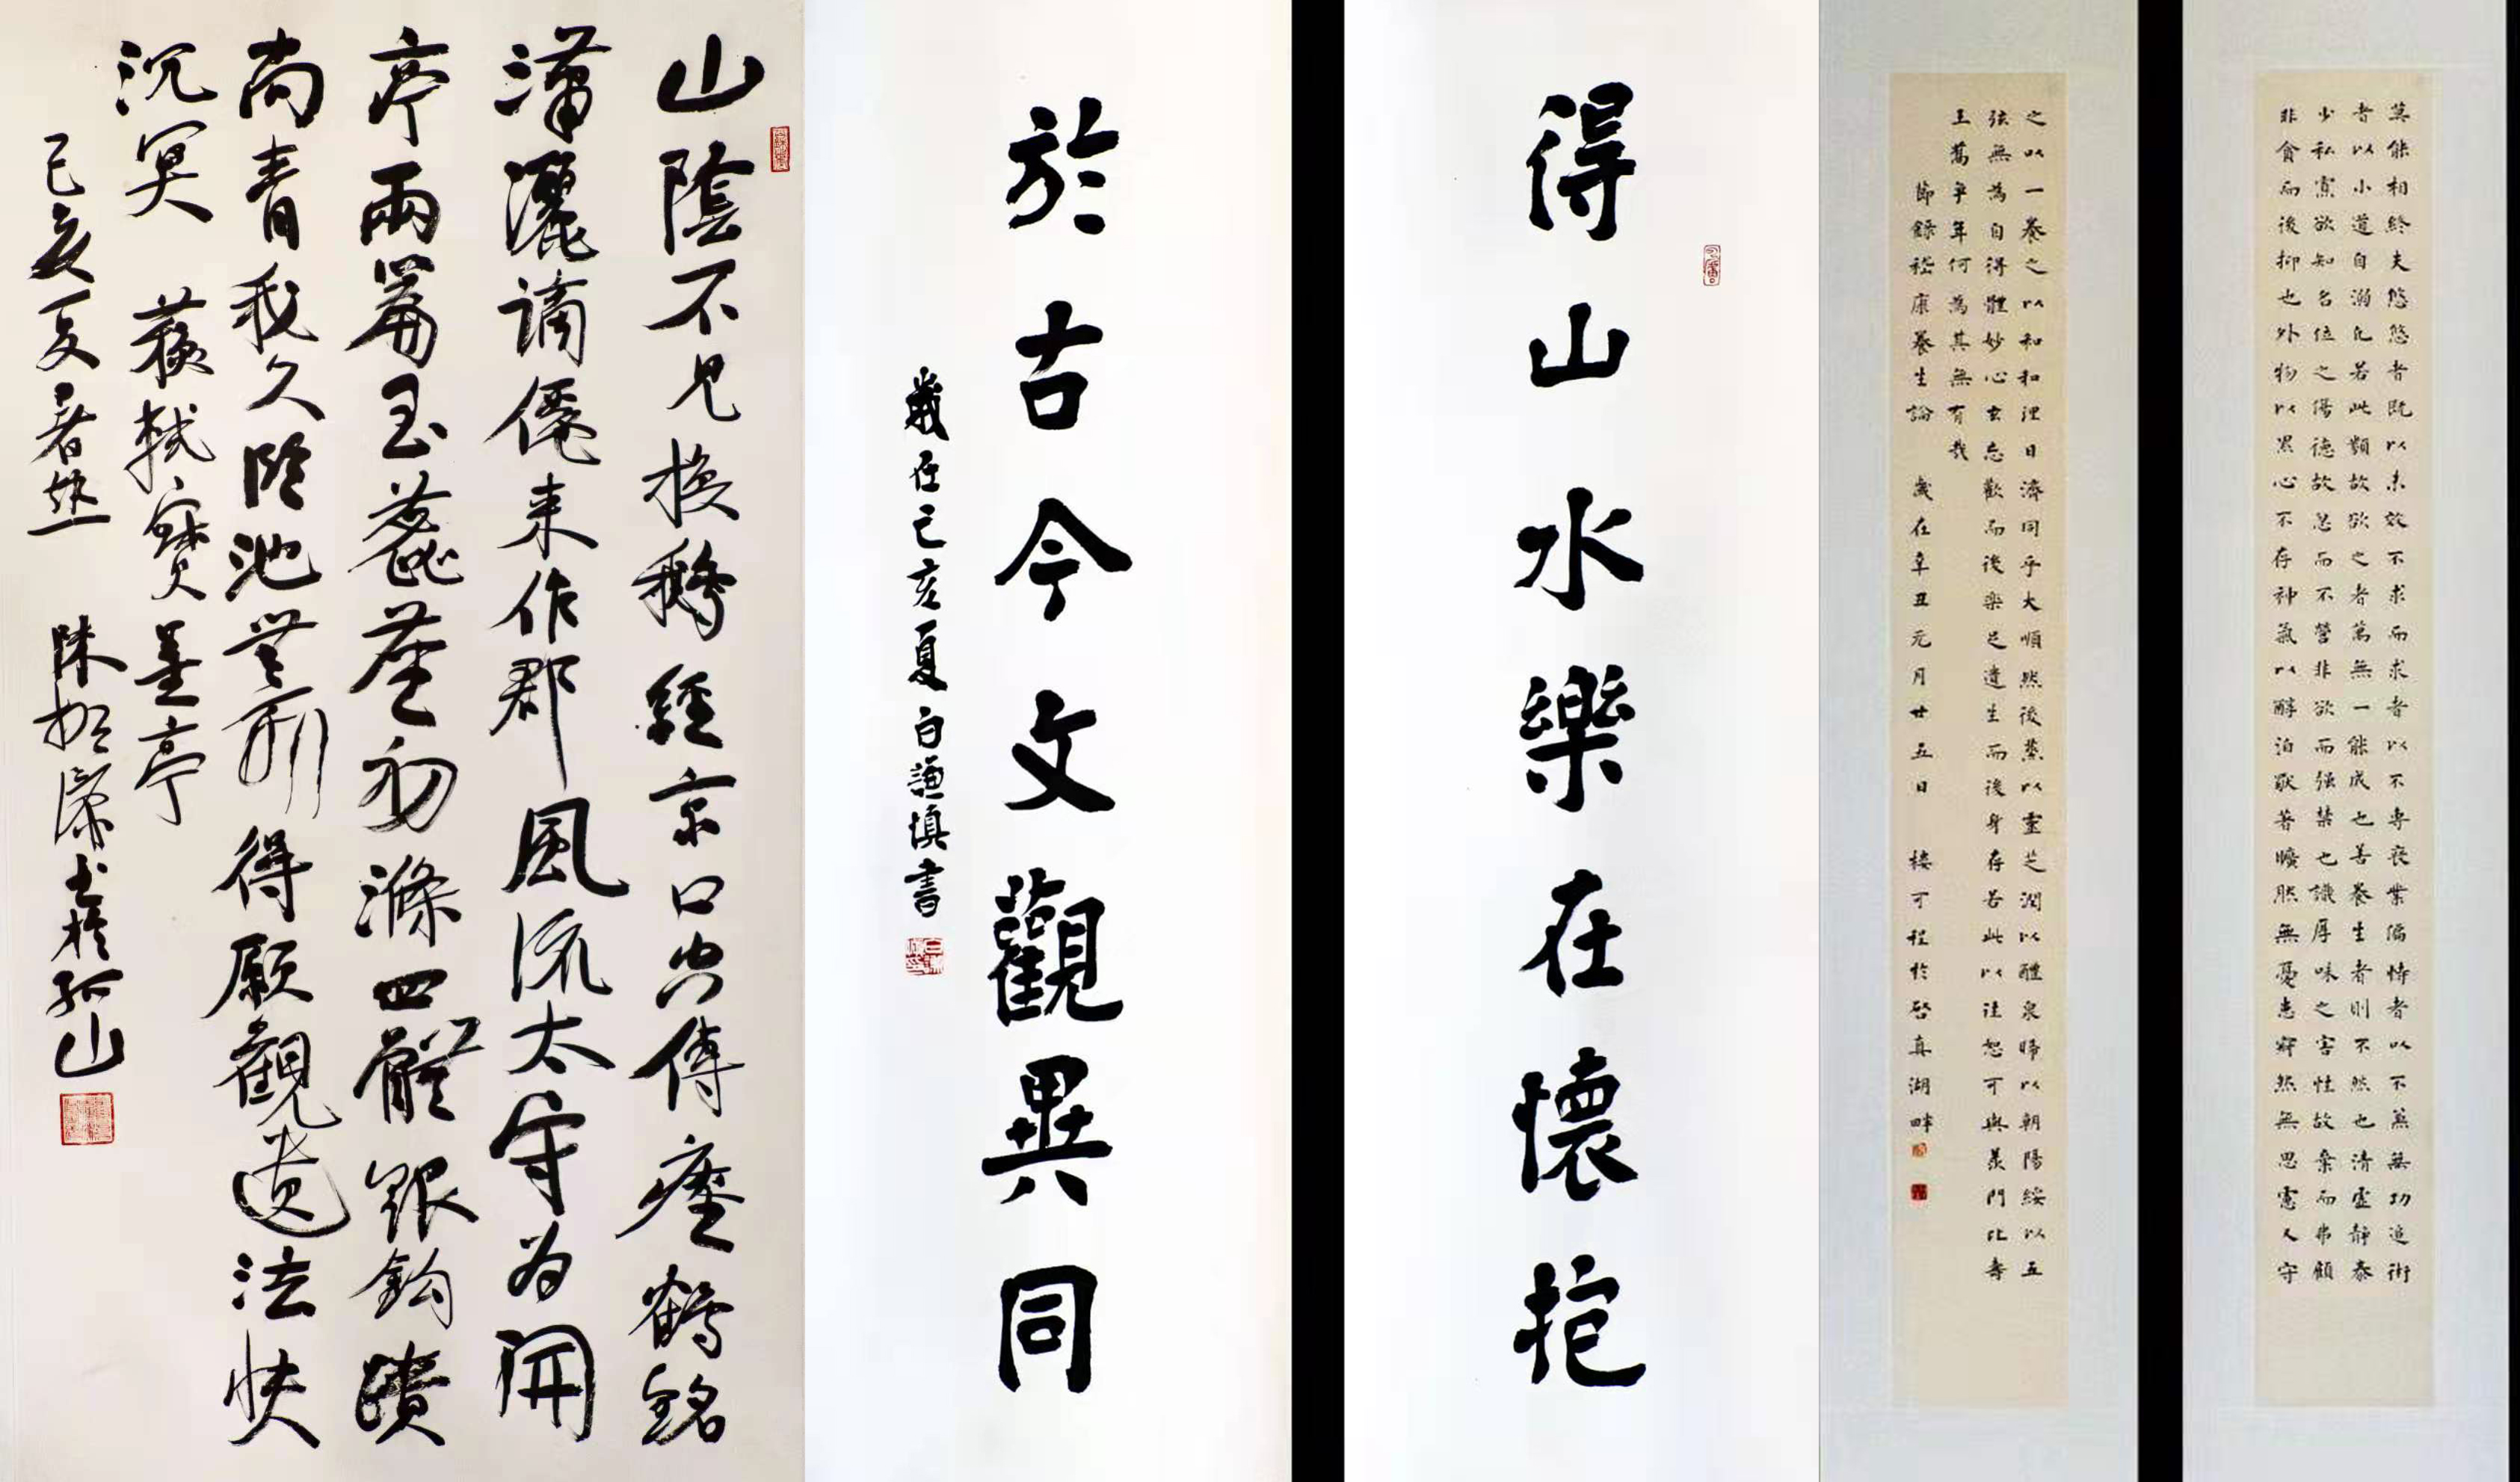 莫能相終夫悠悠者既以未效不求而求者以不專喪業偏恃者以不兼無功追術
者以小道自溺凡若此類故欲之者萬無一能成也善養生者則不然也清虛靜泰
少私寡欲知名位之傷德故忽而不營非欲而强禁也識厚味之害性故棄而弗顧
非貪而後抑也外物以累心不存神氣以醇泊獨著曠然無憂患寂然無思慮又守
之以一養之以和和理日濟同乎大順然後蒸以靈芝潤以醴泉晞以朝陽綏以五
弦無為自得體妙心玄忘歡而後樂足遺生而後身存若此以往恕可與羨門比壽
王喬爭年何為其無有哉
節錄嵇康養生論 歲在辛丑元月廿五日 樓可程於啓真湖畔
得山水樂在懷抱
於古今文觀異同
歲在己亥夏白謙慎書
山陰不見換鵝經京口空傳瘞鶴銘
瀟灑謫僊來作郡風流太守為開
亭兩篇玉蘂塵初滌四體銀鈎蹟
尚青我久臨池無所得願觀遺法快
沉冥 蘇軾寶墨亭
己亥夏暑熱 陳振濂書於孤山